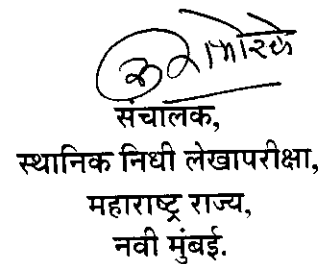 संचालक,
स्थानिक निधी लेखापरीक्षा,
महाराष्ट्र राज्य,
नवी मुंबई.